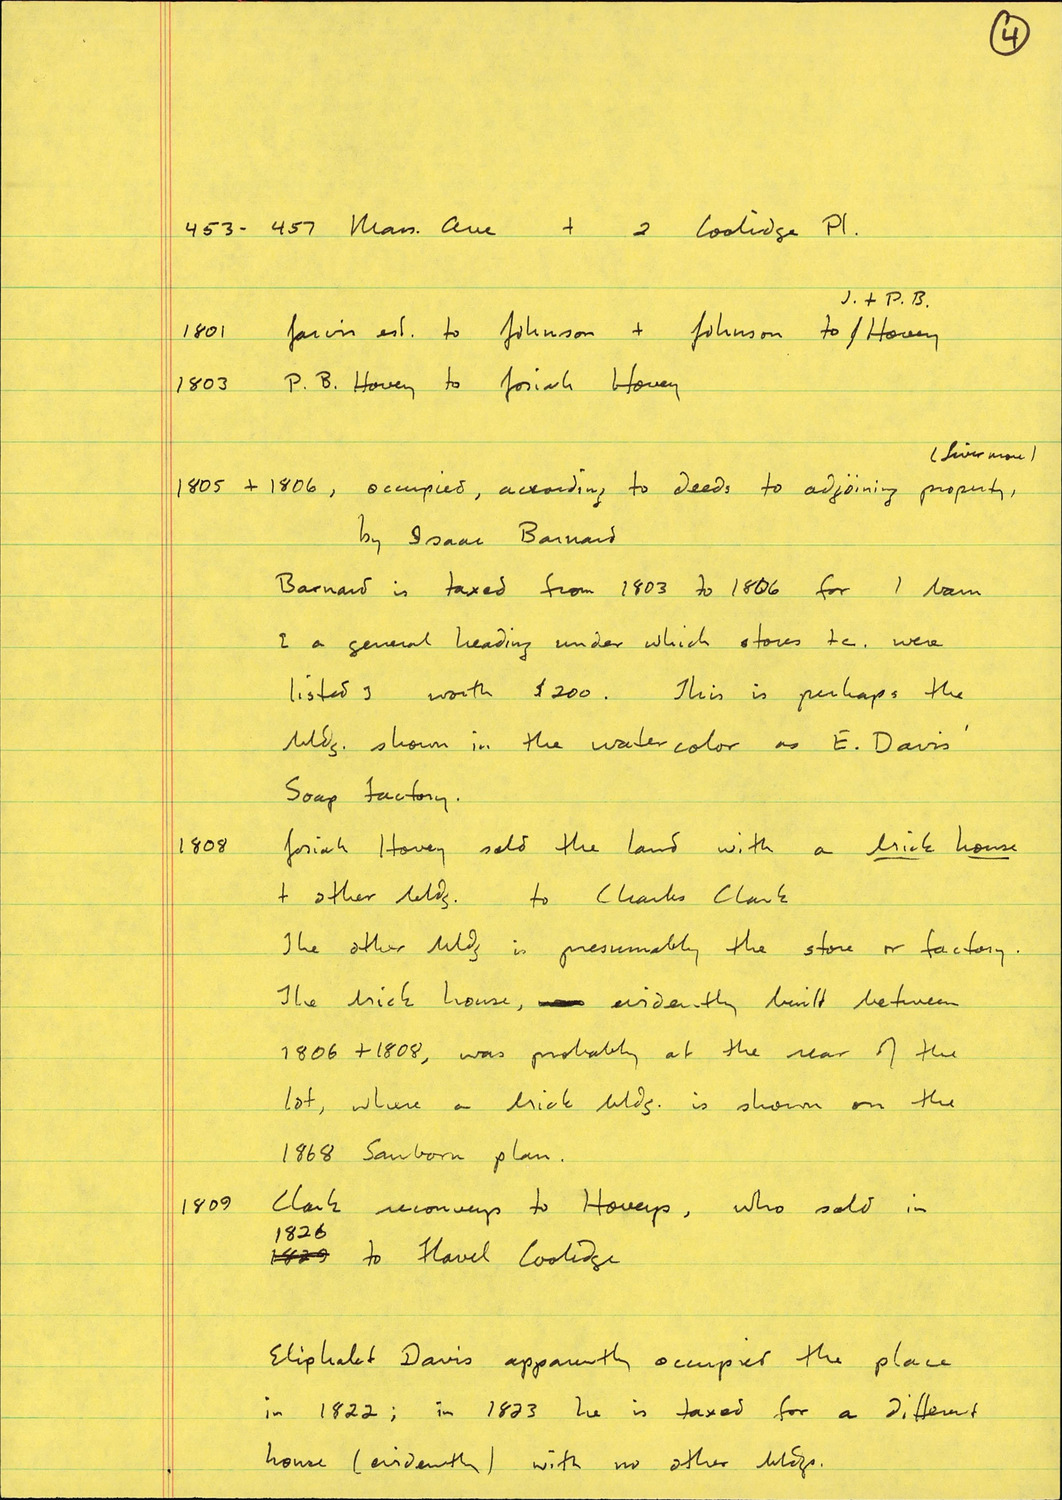 4
453-457 Mass. Ave + 2 Coolidge Pl.
J. + P.B.
1801 Jarvis est. to Johnson + Johnson to / Hovey
1803 P. B. Hovey to Josiah Hovey
(Livermore)
1805 + 1806, occupied, according to deeds to adjoining property,
by Isaac Barnard
Barnard is taxed from 1803 to 1806 for 1 barn
& a general heading under which stores etc. were
listed] worth $200. This is perhaps the
bldg. shown in the watercolor as E. Davis'
Soap factory.
1808 Josiah Hovey sold the land with a brick house
+ other bldg. to Charles Clark
The other bldg is presumably the store or factory.
The brick house, evidently built between
1806 + 1808, was probably at the rear of the
lot, where a brick bldg. is shown on the
1868 Sanborn plan.
1809 Clark reconveys to Hoveys, who sold in
1826
1829 to Flavel Coolidge
Eliphalet Davis apparently occupied the place
in 1822; in 1823 he is taxed for a different
house (evidently) with no other bldgs.